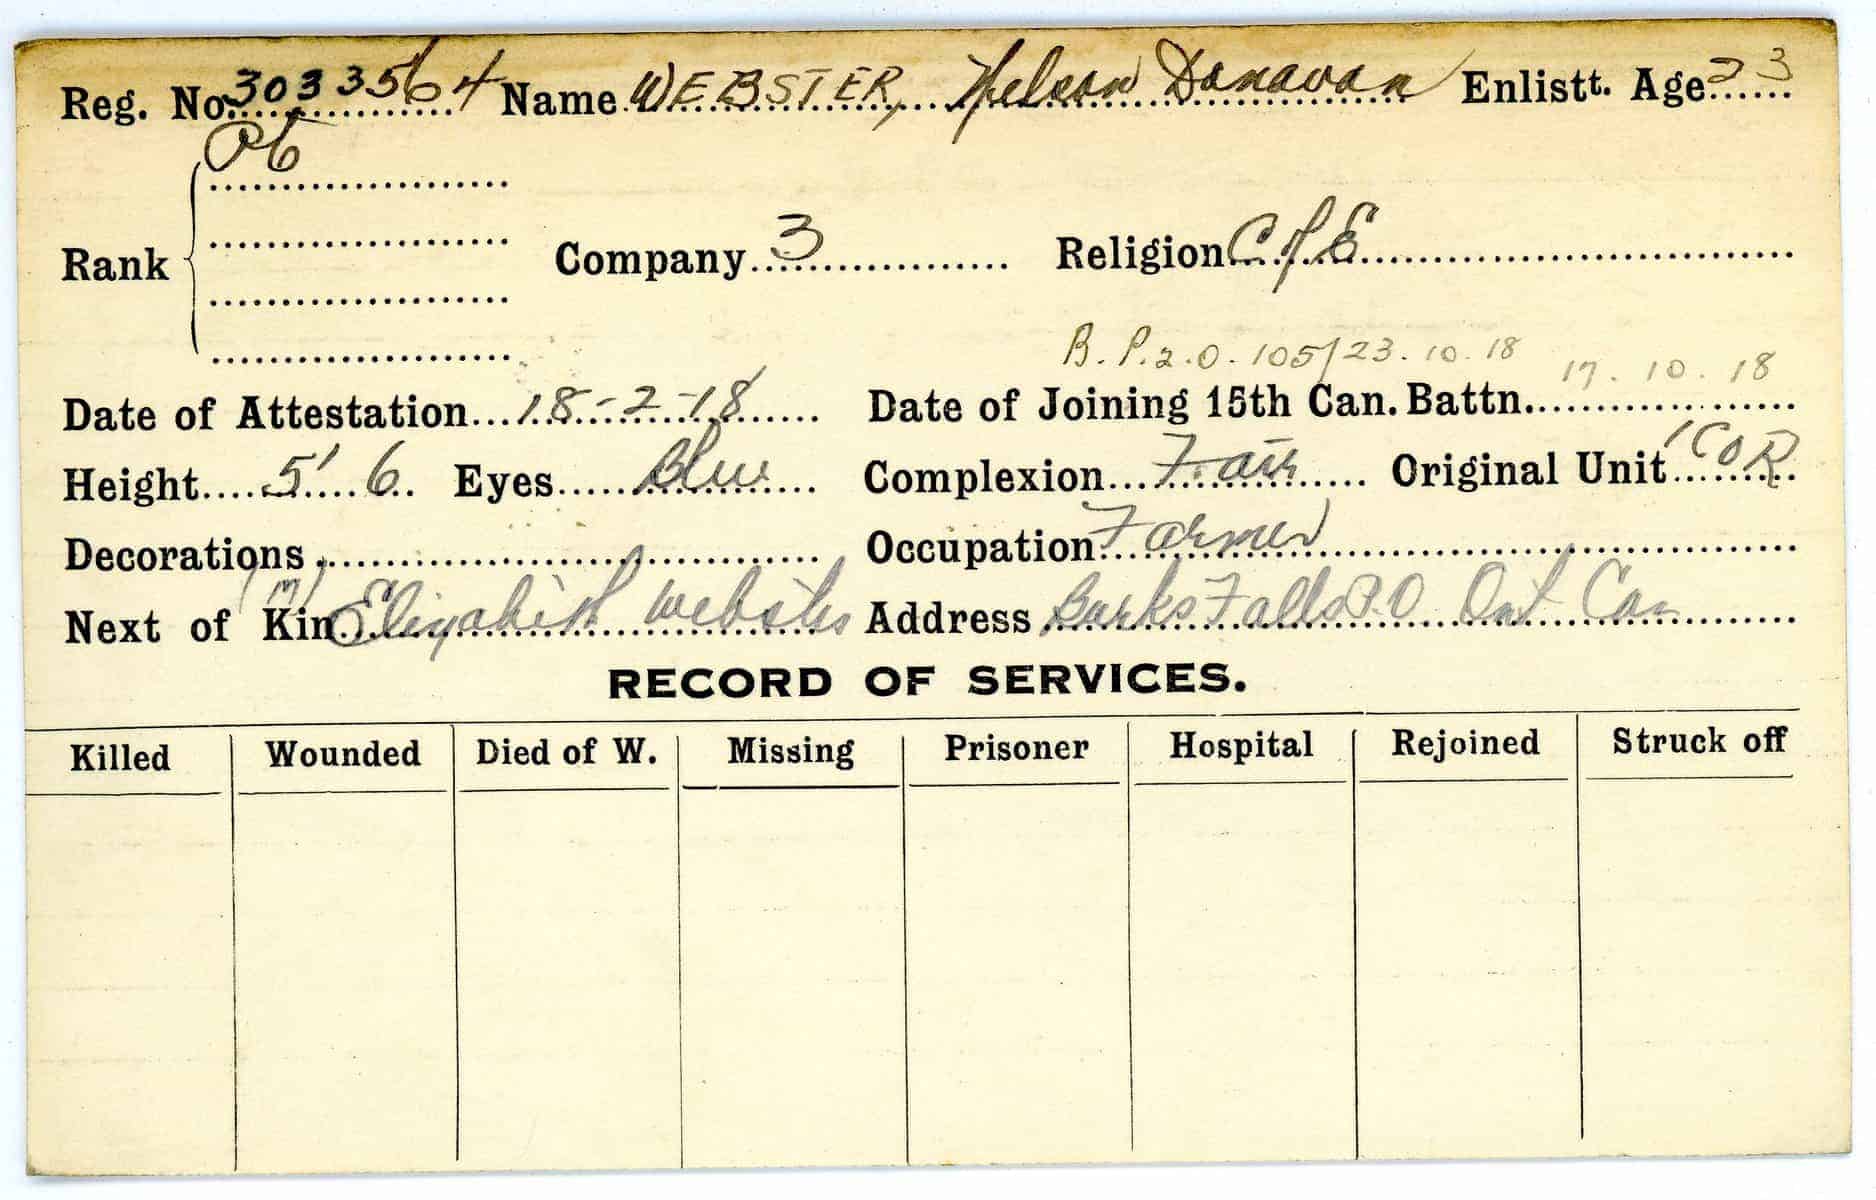 Reg. No. 3033564 Name WEBSTER, Nelson Donavan Enlistt. Age 23
Pte
Rank Company 3 Religion C of E
B. P.2.O. 105/23.10.18
Date of Attestation 18-2-18 Date of Joining 15th Can. Battn. 17.10.18
Height 5' 6 Eyes Blue Complexion Fair Original Unit 1 COR
Decorations Occupation Farmer
(m)
Next of Kin Elizabeth Webster Address Burks Falls P.O Ont Can
RECORD OF SERVICES.
Killed Wounded Died of W. Missing Prisoner Hospital Rejoined Struck off